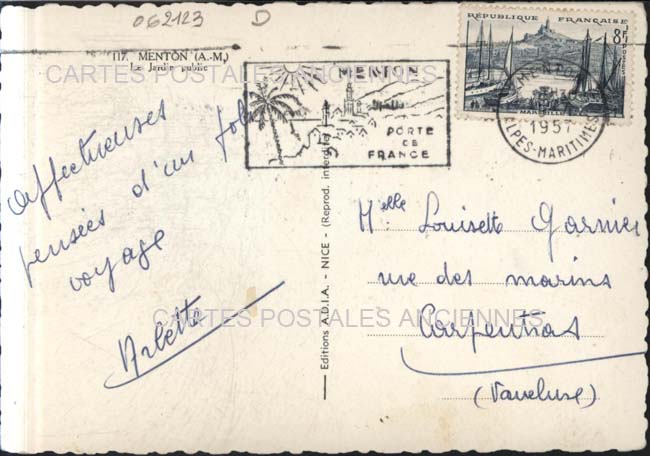 062123 D
117. MENTON (A.-M.)
Le Jardin public
CARTES POSTALES ANCIENNES
MENTON
PORTE
DE
FRANCE
RÉPUBLIQUE FRANÇAISE
8F
POSTES
MARSEILLE
1957
ALPES-MARITIMES
Affectueuses
pensées d'un joli
voyage
Arlette
Editions A.D.I.A. - NICE - (Reprod. interdite)
Melle Louisette Garnier
rue des marins
Carpentras
(Vaucluse)
CARTES POSTALES ANCIENNES